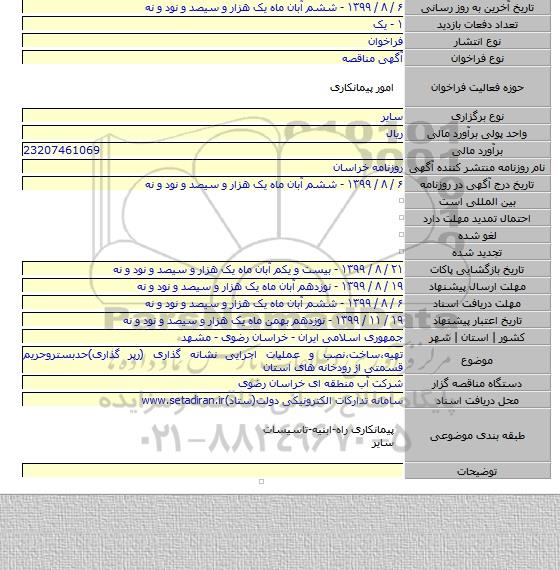 تاریخ آخرین به روز رسانی ۶ / ۸ / ۱۳۹۹ - ششم آبان ماه یک هزار و سیصد و نود و نه
تعداد دفعات بازدید ۱ - یک
نوع انتشار فراخوان
نوع فراخوان آگهی مناقصه
حوزه فعالیت فراخوان امور پیمانکاری
نوع برگزاری سایر
واحد پولی برآورد مالی ریال
برآورد مالی 23207461069
نام روزنامه منتشر کننده آگهی روزنامه خراسان
تاریخ درج آگهی در روزنامه ۶ / ۸ / ۱۳۹۹ - ششم آبان ماه یک هزار و سیصد و نود و نه
بین المللی است
احتمال تمدید مهلت دارد
لغو شده
تجدید شده
تاریخ بازگشایی پاکات ۲۱ / ۸ / ۱۳۹۹ - بیست و یکم آبان ماه یک هزار و سیصد و نود و نه
مهلت ارسال پیشنهاد ۱۹ / ۸ / ۱۳۹۹ - نوزدهم آبان ماه یک هزار و سیصد و نود و نه
مهلت دریافت اسناد ۶ / ۸ / ۱۳۹۹ - ششم آبان ماه یک هزار و سیصد و نود و نه
تاریخ اعتبار پیشنهاد ۱۹ / ۱۱ / ۱۳۹۹ - نوزدهم بهمن ماه یک هزار و سیصد و نود و نه
کشور | استان | شهر جمهوری اسلامی ایران - خراسان رضوی - مشهد
موضوع تهیه،ساخت،نصب و عملیات اجرایی نشانه گذاری (رپر گذاری)حدبستروحریم
قسمتی از رودخانه های استان
دستگاه مناقصه گزار شرکت آب منطقه ای خراسان رضوی
محل دریافت اسناد سامانه تدارکات الکترونیکی دولت(ستاد)www.setadiran.ir
طبقه بندی موضوعی پیمانکاری راه-ابنیه-تاسیسات
سایر
توضیحات
۰۲۱-۸۸۳۴۹۶۷۰-۵